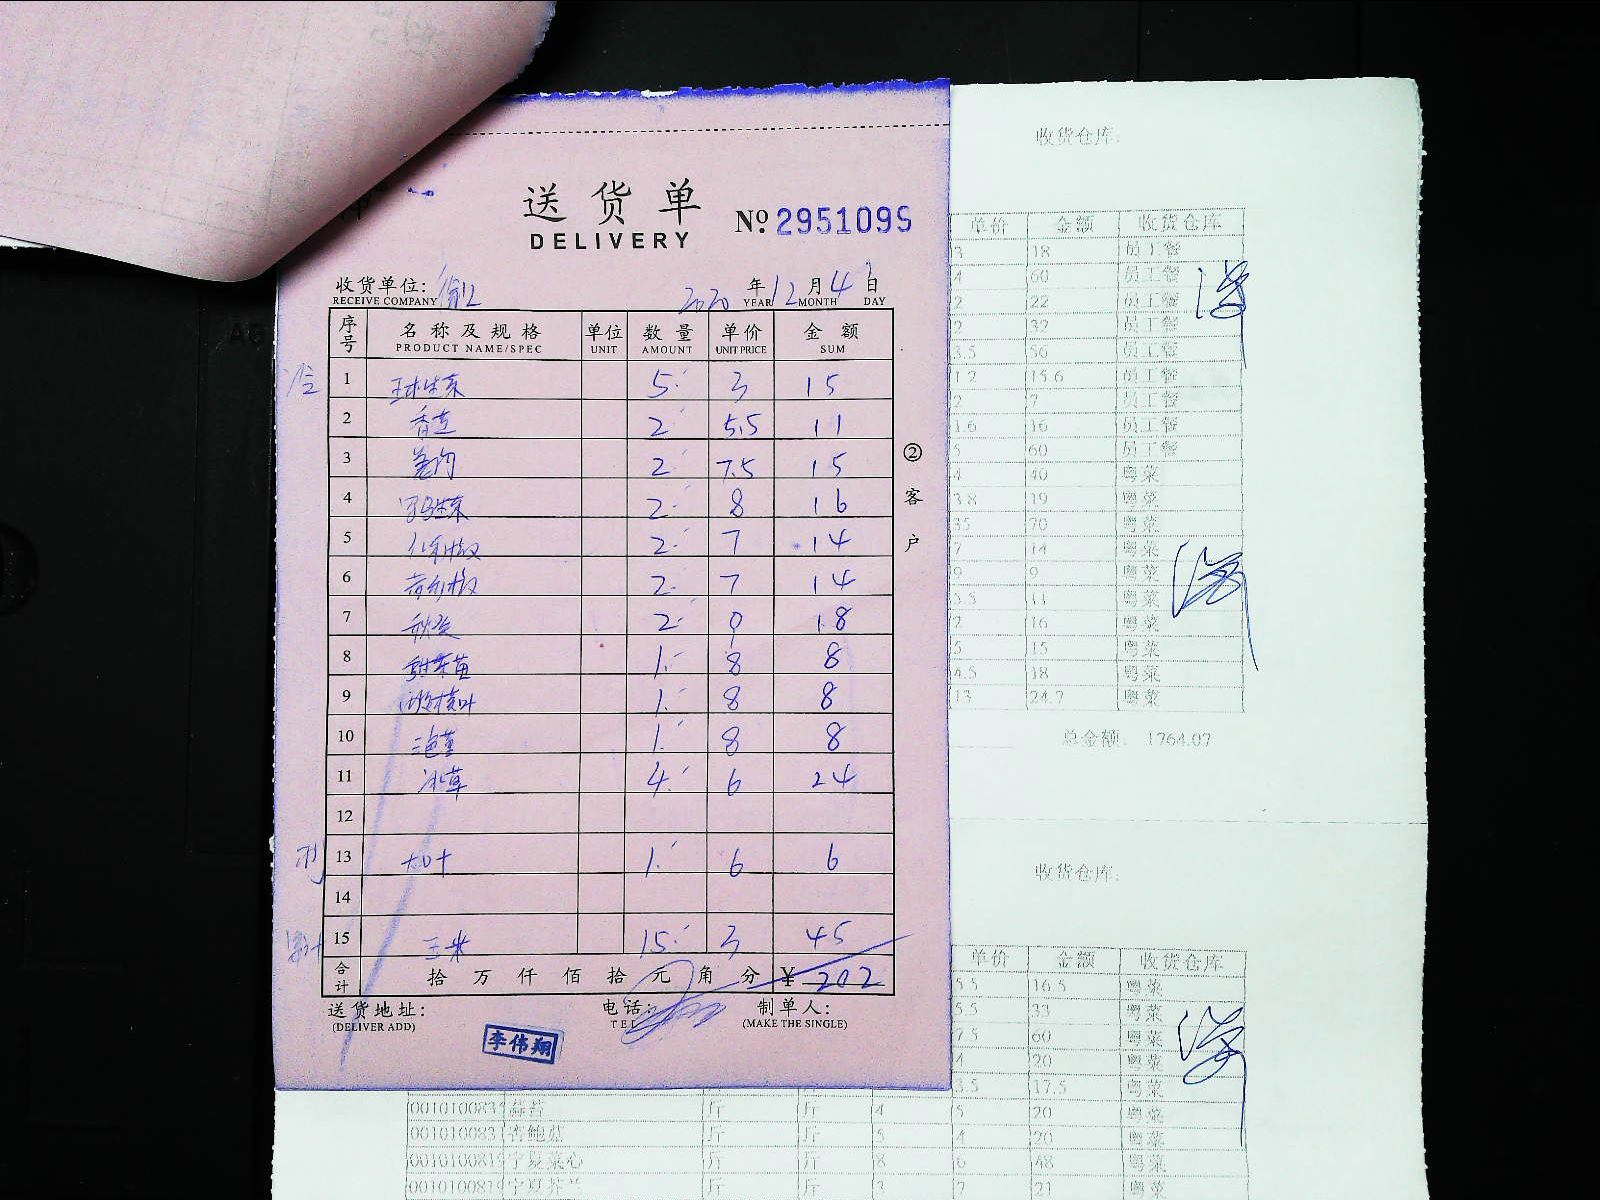 送货单
DELIVERY
№ 2951099
收货单位:
RECEIVE COMPANY
2020 年 12 月 4 日
YEAR MONTH DAY
序号 名称及规格 单位 数量 单价 金额
PRODUCT NAME/SPEC UNIT AMOUNT UNIT PRICE SUM
1 球生菜 5 3 15
2 香芹 2 5.5 11
3 2 7.5 15
4 罗马生菜 2 8 16
5 2 7 14
6 2 7 14
7 秋葵 2 9 18
8 1 8 8
9 1 8 8
10 三色堇 1 8 8
11 冰草 4 6 24
12
13 1 6 6
14
15 玉米 15 3 45
合计 拾万仟佰拾元角分 ¥ 202
送货地址: 电话: 制单人:
(DELIVER ADD) TEL (MAKE THE SINGLE)
李伟翔
②客户
收货仓库:
单价 金额 收货仓库
3 18 员工餐
4 60 员工餐
2 22 员工餐
2 32 员工餐
3.5 56 员工餐
1.2 15.6 员工餐
2 7 员工餐
1.6 16 员工餐
5 60 员工餐
4 40 粤菜
3.8 19 粤菜
35 70 粤菜
7 14 粤菜
9 9 粤菜
5.5 11 粤菜
2 16 粤菜
5 15 粤菜
4.5 18 粤菜
13 24.7 粤菜
总金额: 1764.07
收货仓库:
单价 金额 收货仓库
5.5 16.5 粤菜
5.5 33 粤菜
7.5 60 粤菜
4 20 粤菜
3.5 17.5 粤菜
001010083 蒜苔 斤 斤 4 5 20 粤菜
001010083 杏鲍菇 斤 斤 5 4 20 粤菜
001010081 宁夏菜心 斤 斤 8 6 48 粤菜
001010081 宁夏芥兰 斤 斤 3 7 21 粤菜